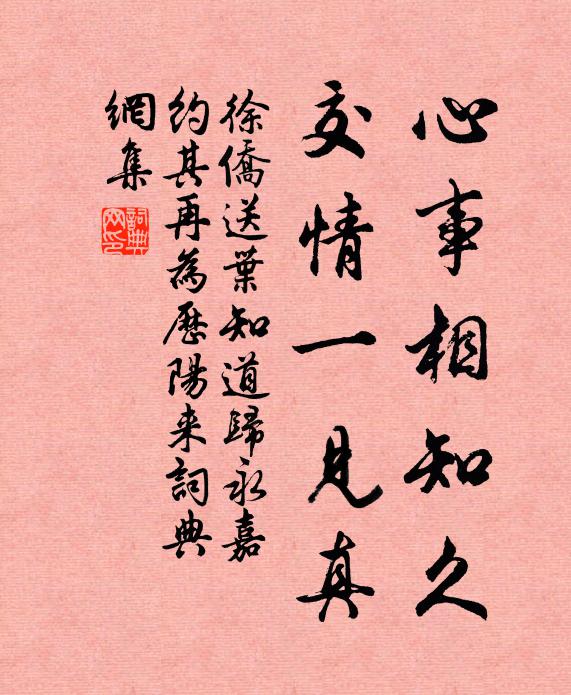 心事相知久
交情一見真
徐僑送葉知道歸永嘉
約其再為歷陽来詞典
網集
詞典網印